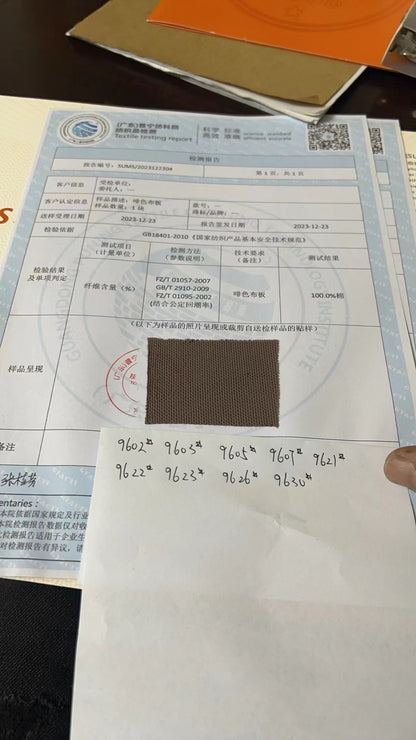 (广东)普宁纺科院
纺织品检测
Textile testing report
科学 标准
高效 准确
science standard
efficient accurate
检测报告
报告编号: SUMS/2023122304
第 1 页, 共 1 页
客户信息
受检单位:
委托人: —
客户认定信息
样品描述: 啡色布板
样品数量: 1 块
款号: —
商标/品牌: —
送样受理日期
2023-12-23
报告签发日期
2023-12-23
检验依据
GB18401-2010《国家纺织产品基本安全技术规范》
检验结果
及单项判定
测试项目
(计量单位)
检测方法
(参数说明)
技术要求
(备注)
测试结果
纤维含量 (%)
FZ/T 01057-2007
GB/T 2910-2009
FZ/T 01095-2002
(结合公定回潮率)
啡色布板
100.0%棉
(以下为样品的照片呈现或裁剪自送检样品的贴样)
样品呈现
备注
9602# 9603# 9605# 9607# 9621#
9622# 9623# 9626# 9630#
mentaries:
本院依据国家规定及行业
本院检测报告数据仅对收
检测报告适用于企业生
对检测报告有异议, 请